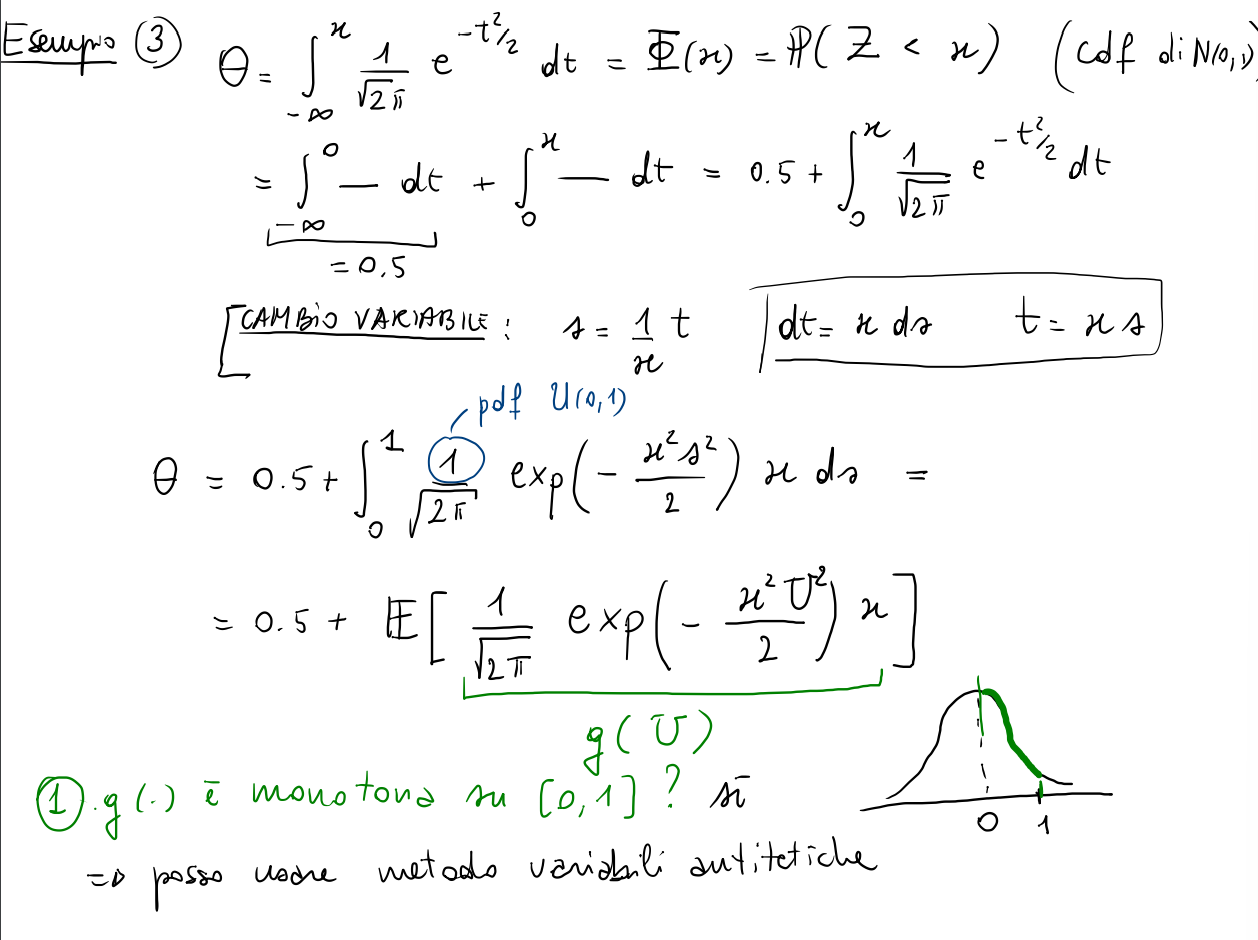 Esempio ③ θ = ∫_{-∞}^{x} 1/√2π e^{-t²/2} dt = Φ(x) = ℙ( Z < x ) (cdf di N(0,1)
= ∫_{-∞}^{0} — dt + ∫_{0}^{x} — dt = 0.5 + ∫_{0}^{x} 1/√2π e^{-t²/2} dt
= 0.5
[CAMBIO VARIABILE : s = 1/x t dt = x ds t = x s
pdf U(0,1)
θ = 0.5 + ∫_{0}^{1} 1/√2π exp(- x²s²/2) x ds =
= 0.5 + 𝔼[ 1/√2π exp(- x²U²/2) x ]
g(U)
①. g(.) è monotona su [0,1] ? sì
0 1
=> posso usare metodo variabili antitetiche